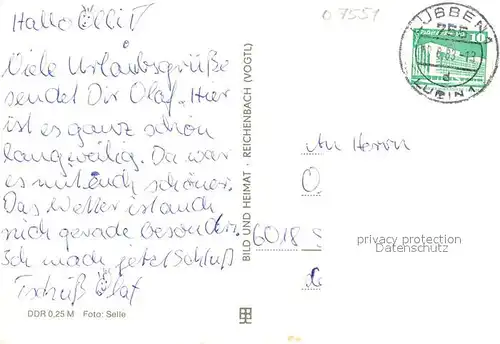 Hallo Olli!
Viele Urlaubsgrüße
sendet Dir Olaf. Hier
ist es ganz schön
langweilig. Da war
es mit euch schöner.
Das Wetter ist auch
nich gerade besonders.
Ich mach jetzt Schluß
Tschüß Olaf
DDR 0,25 M Foto: Selle
BILD UND HEIMAT · REICHENBACH (VOGTL)
O 7551
LÜBBEN 1
755
d
10
An Herrn
O
6018 S
privacy protection
Datenschutz